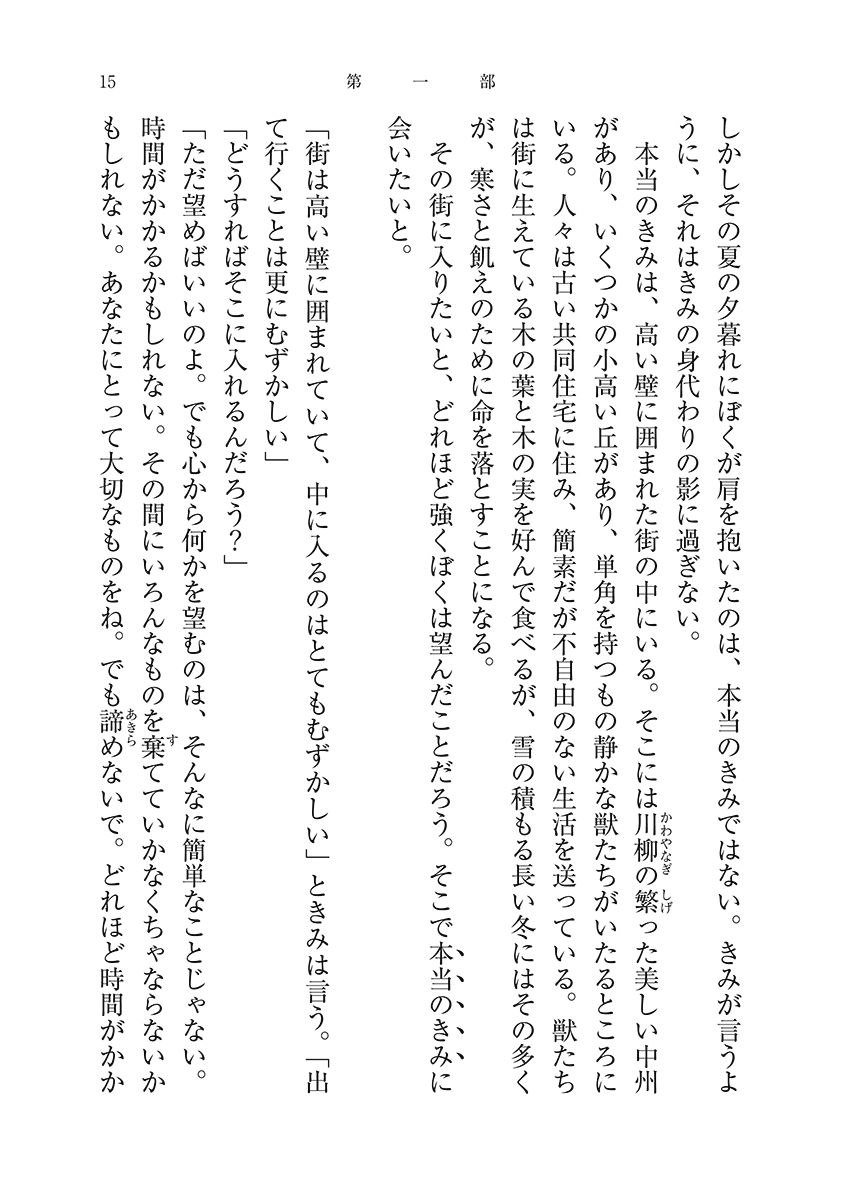 15
第一部
しかしその夏の夕暮れにぼくが肩を抱いたのは、本当のきみではない。きみが言うよ
うに、それはきみの身代わりの影に過ぎない。
　本当のきみは、高い壁に囲まれた街の中にいる。そこには川柳の繁った美しい中州
かわやなぎ　しげ
があり、いくつかの小高い丘があり、単角を持つもの静かな獣たちがいたるところに
いる。人々は古い共同住宅に住み、簡素だが不自由のない生活を送っている。獣たち
は街に生えている木の葉と木の実を好んで食べるが、雪の積もる長い冬にはその多く
が、寒さと飢えのために命を落とすことになる。
　その街に入りたいと、どれほど強くぼくは望んだことだろう。そこで本当のきみに
会いたいと。
「街は高い壁に囲まれていて、中に入るのはとてもむずかしい」ときみは言う。「出
て行くことは更にむずかしい」
「どうすればそこに入れるんだろう？」
「ただ望めばいいのよ。でも心から何かを望むのは、そんなに簡単なことじゃない。
時間がかかるかもしれない。その間にいろんなものを棄てていかなくちゃならないか
す
もしれない。あなたにとって大切なものをね。でも諦めないで。どれほど時間がかか
あきら